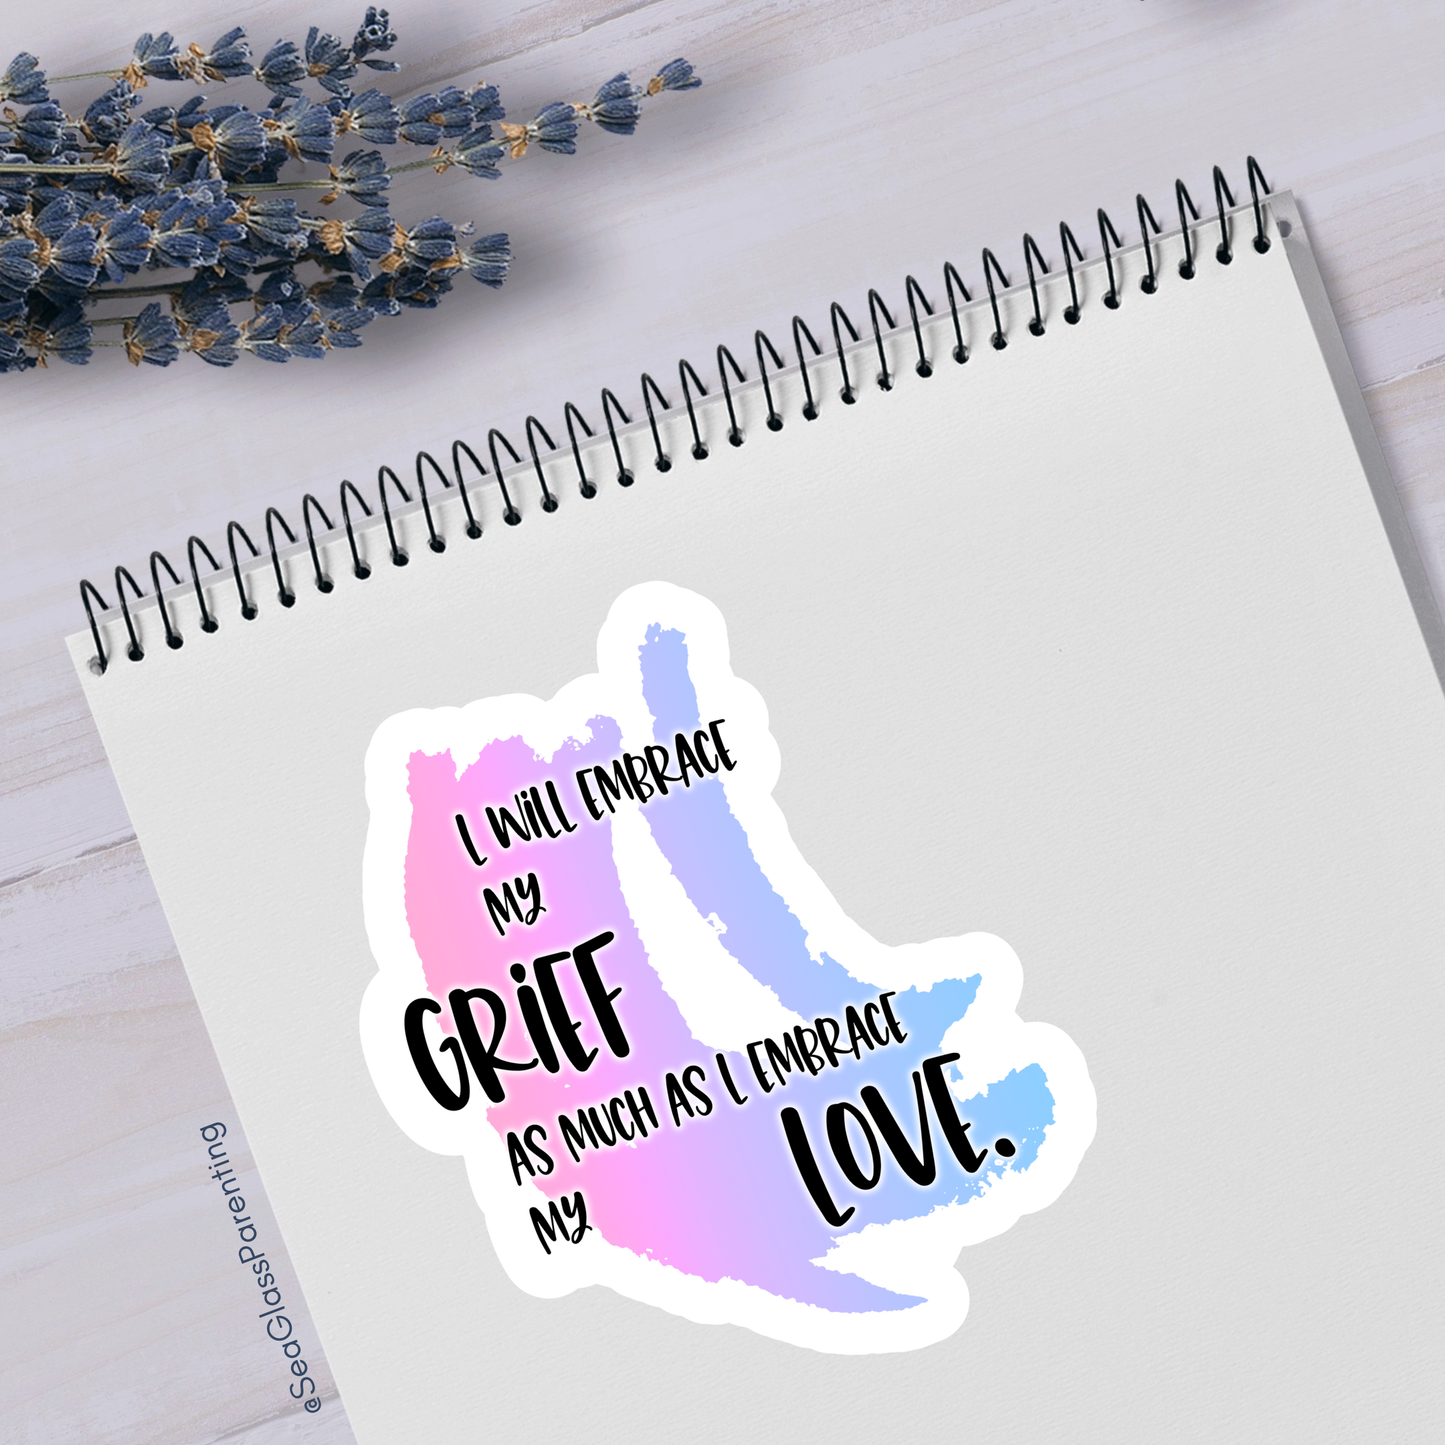 I WiLL EMBRACE
MY
GRiEF
AS MUCH AS I EMBRACE
MY LOVE.
@SeaGlassParenting